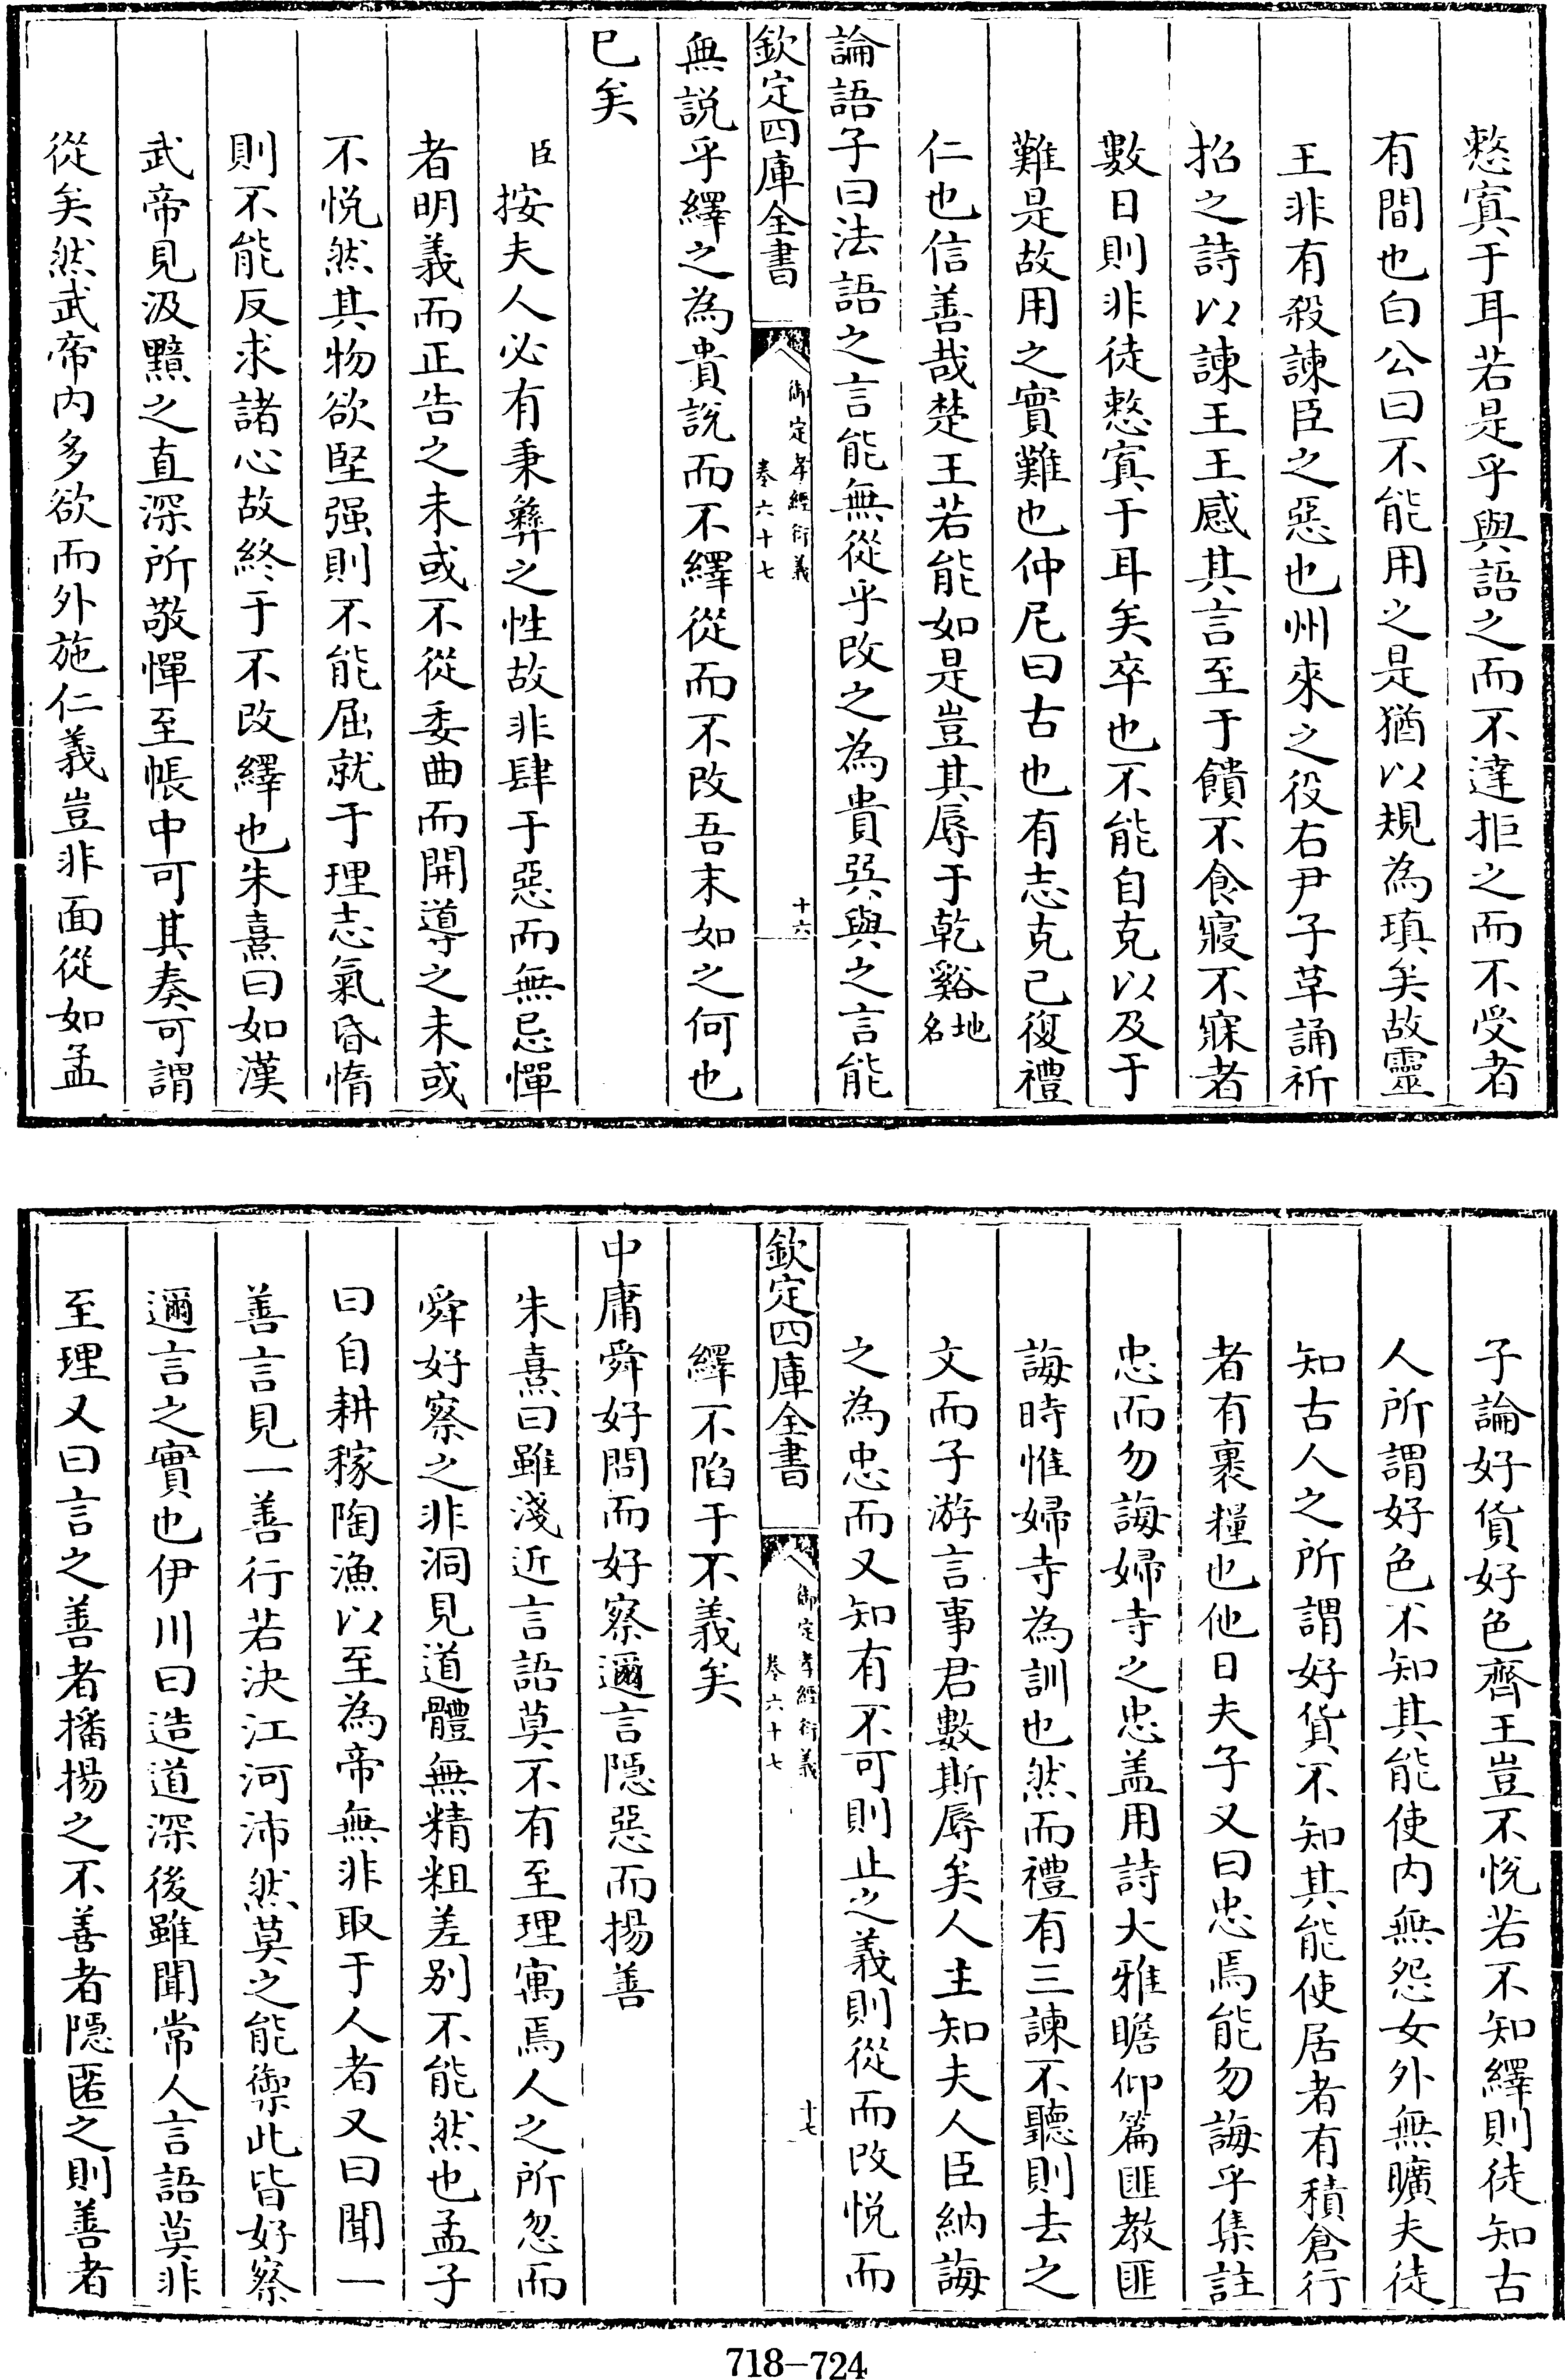 憗寘于耳若是乎與語之而不達拒之而不受者
有間也白公曰不能用之是猶以規為瑱矣故靈
王非有殺諫臣之惡也州來之役右尹子革誦祈
招之詩以諫王王感其言至于饋不食寢不寐者
數日則非徒憗寘于耳矣卒也不能自克以及于
難是故用之實難也仲尼曰古也有志克己復禮
仁也信善哉楚王若能如是豈其辱于乾谿地名
論語子曰法語之言能無從乎改之為貴巽與之言能
欽定四庫全書 御定孝經衍義 卷六十七 十六
無説乎繹之為貴説而不繹從而不改吾末如之何也
已矣
臣按夫人必有秉彝之性故非肆于惡而無忌憚
者明義而正告之未或不從委曲而開導之未或
不悦然其物欲堅强則不能屈就于理志氣昏惰
則不能反求諸心故終于不改繹也朱熹曰如漢
武帝見汲黯之直深所敬憚至帳中可其奏可謂
從矣然武帝内多欲而外施仁義豈非面從如孟
子論好貨好色齊王豈不悦若不知繹則徒知古
人所謂好色不知其能使内無怨女外無曠夫徒
知古人之所謂好貨不知其能使居者有積倉行
者有裹糧也他日夫子又曰忠焉能勿誨乎集註
忠而勿誨婦寺之忠盖用詩大雅瞻仰篇匪教匪
誨時惟婦寺為訓也然而禮有三諫不聽則去之
文而子游言事君數斯辱矣人主知夫人臣納誨
之為忠而又知有不可則止之義則從而改悦而
欽定四庫全書 御定孝經衍義 卷六十七 十七
繹不陷于不義矣
中庸舜好問而好察邇言隱惡而揚善
朱熹曰雖淺近言語莫不有至理寓焉人之所忽而
舜好察之非洞見道體無精粗差别不能然也孟子
曰自耕稼陶漁以至為帝無非取于人者又曰聞一
善言見一善行若決江河沛然莫之能禦此皆好察
邇言之實也伊川曰造道深後雖聞常人言語莫非
至理又曰言之善者播揚之不善者隱匿之則善者
718-724